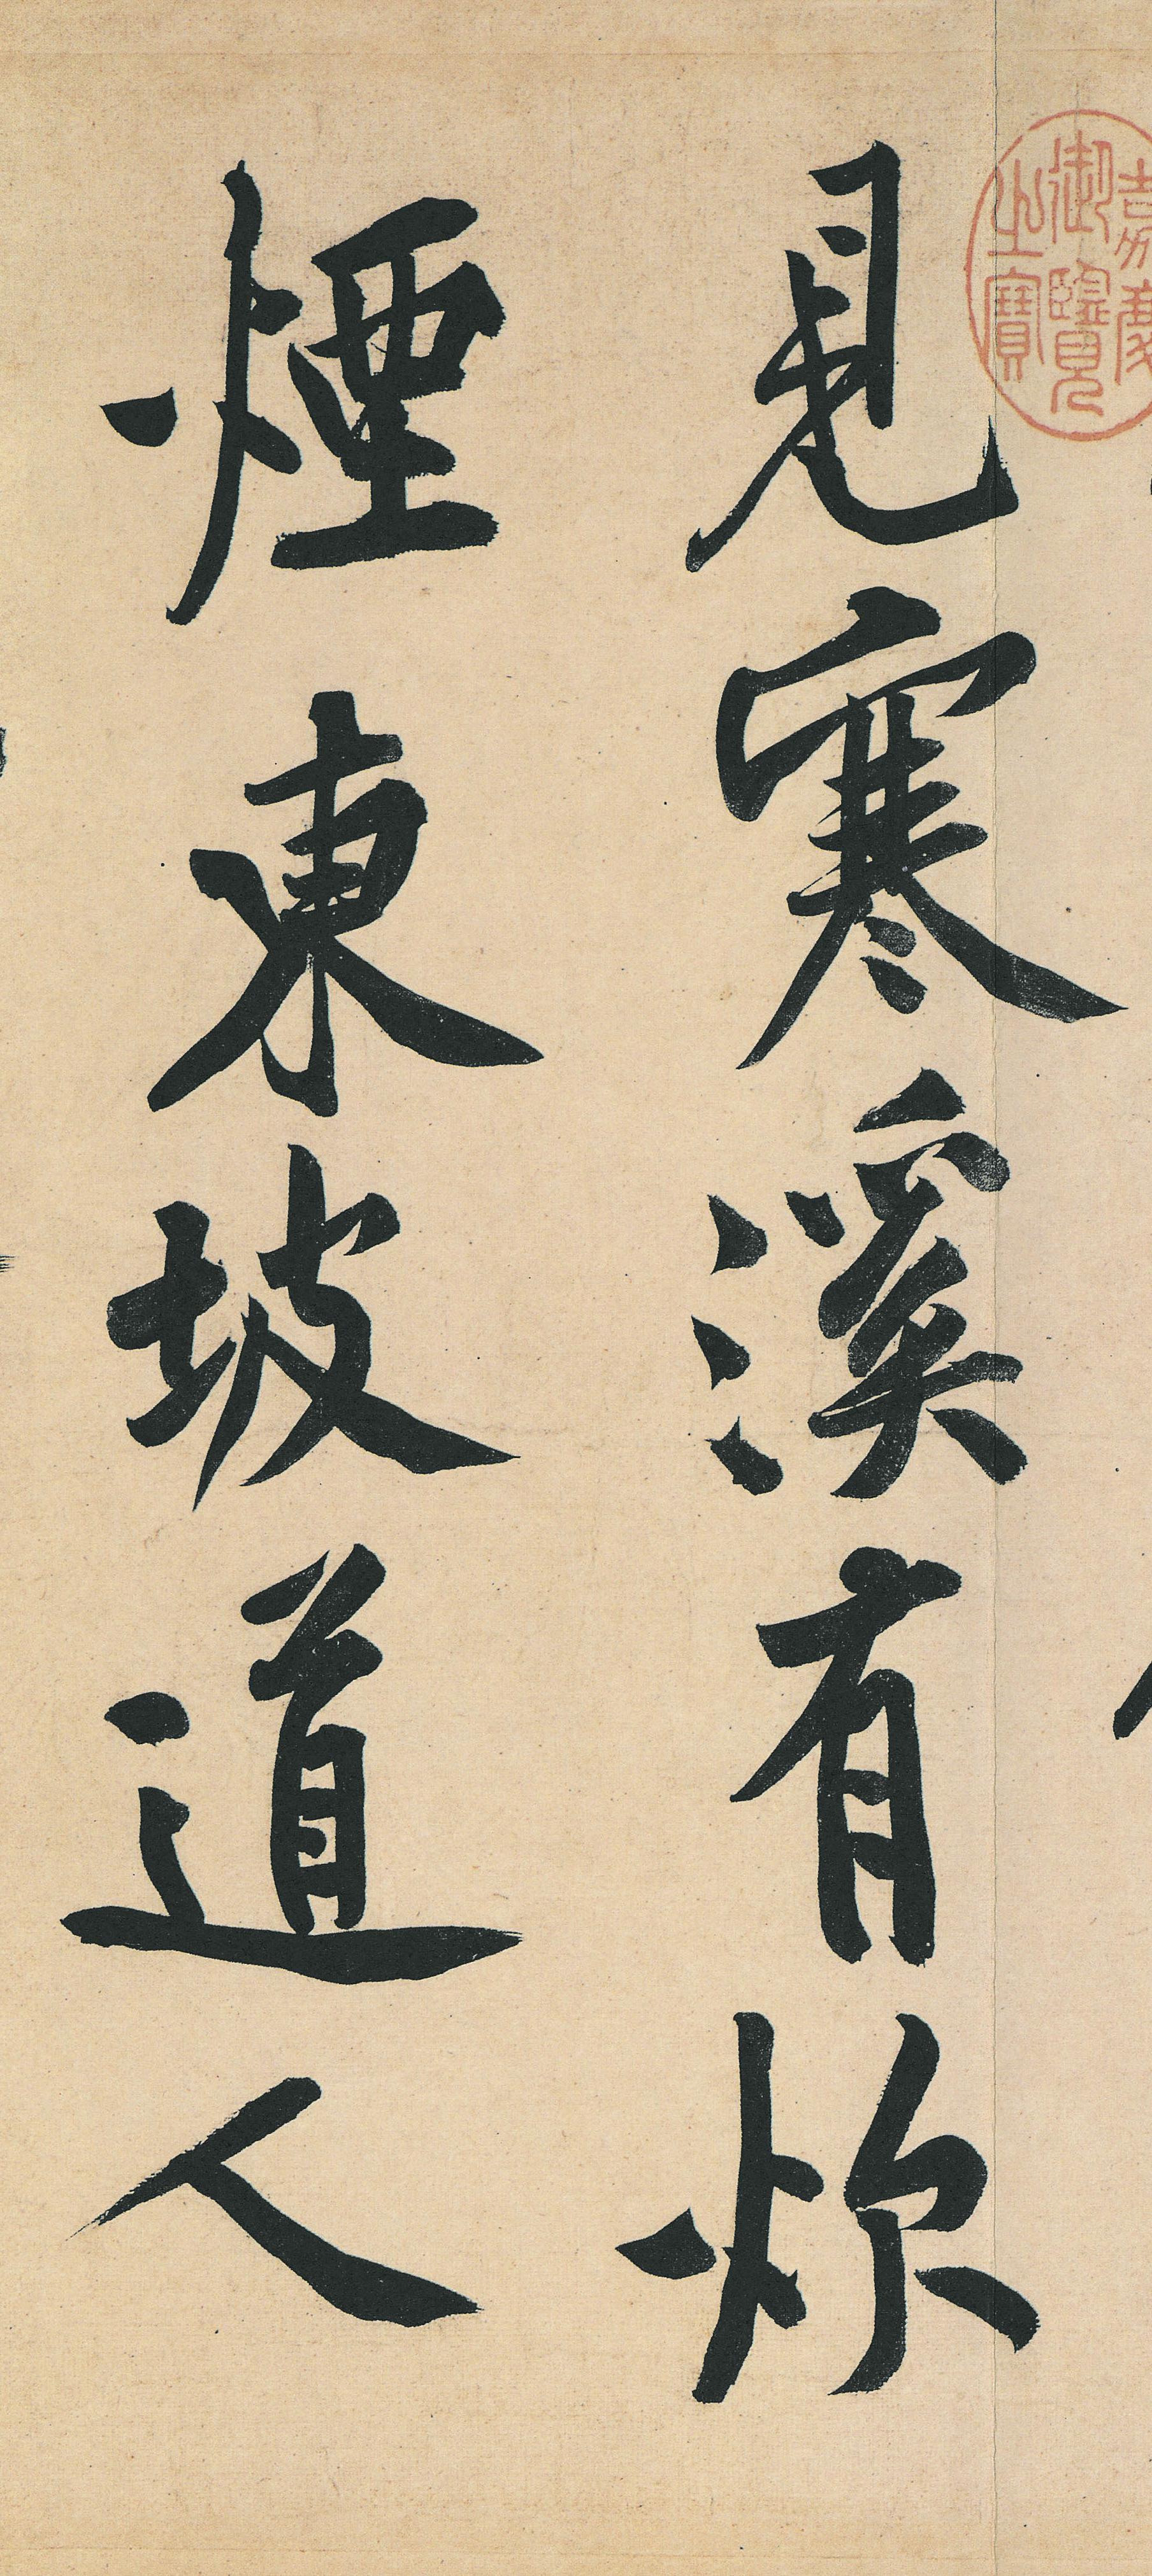 見寒溪有炊
煙東坡道人
嘉慶御覽之寶